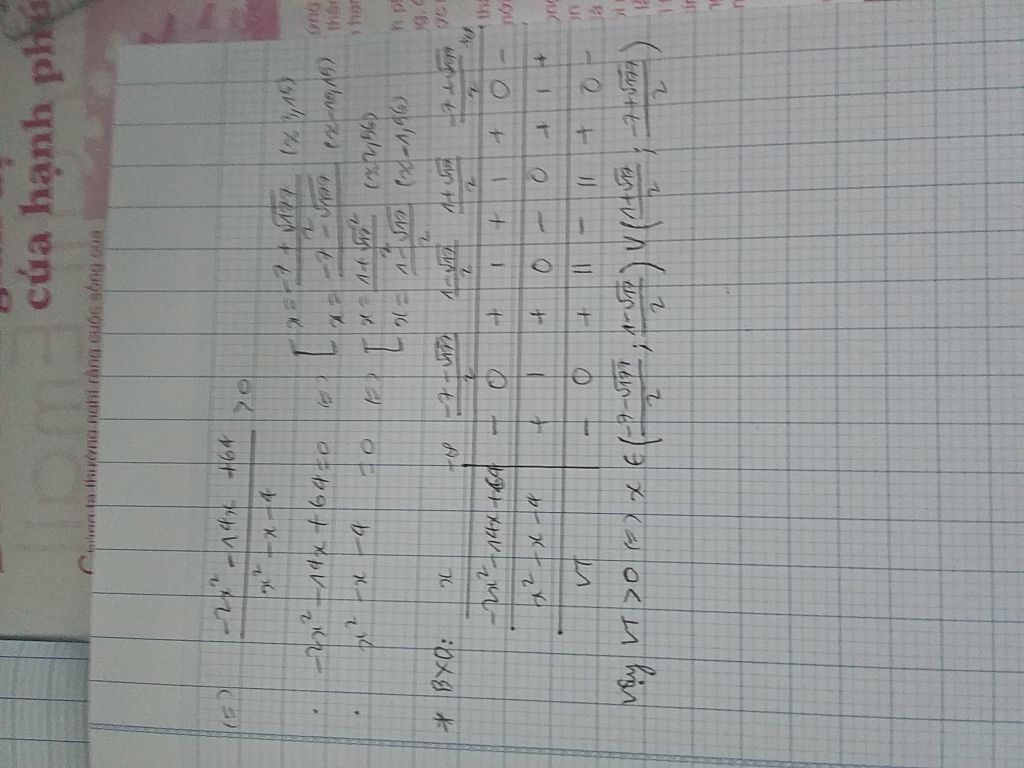 của hạnh phú
Chúng ta thường nghĩ rằng cuộc sống của
(=) (-2x² - 14x + 64)/(x² - x - 4) > 0
. -2x² - 14x + 64 = 0 (=) [ x = (-7 + √177)/2 (x 3,15)
x = (-7 - √177)/2 (x -10,15)
. x² - x - 4 = 0 (=) [ x = (1 + √17)/2 (x 2,56)
x = (1 - √17)/2 (x -1,56)
* BXD: x -∞ (-7 - √177)/2 (1 - √17)/2 (1 + √17)/2 (-7 + √177)/2 +∞
-2x² - 14x + 64 - 0 + | + | + 0 -
x² - x - 4 + | + 0 - 0 + | +
VT - 0 + || - || + 0 -
Vậy VT > 0 (=) x ∈ ((-7 - √177)/2 ; (1 - √17)/2) ∪ ((1 + √17)/2 ; (-7 + √177)/2)